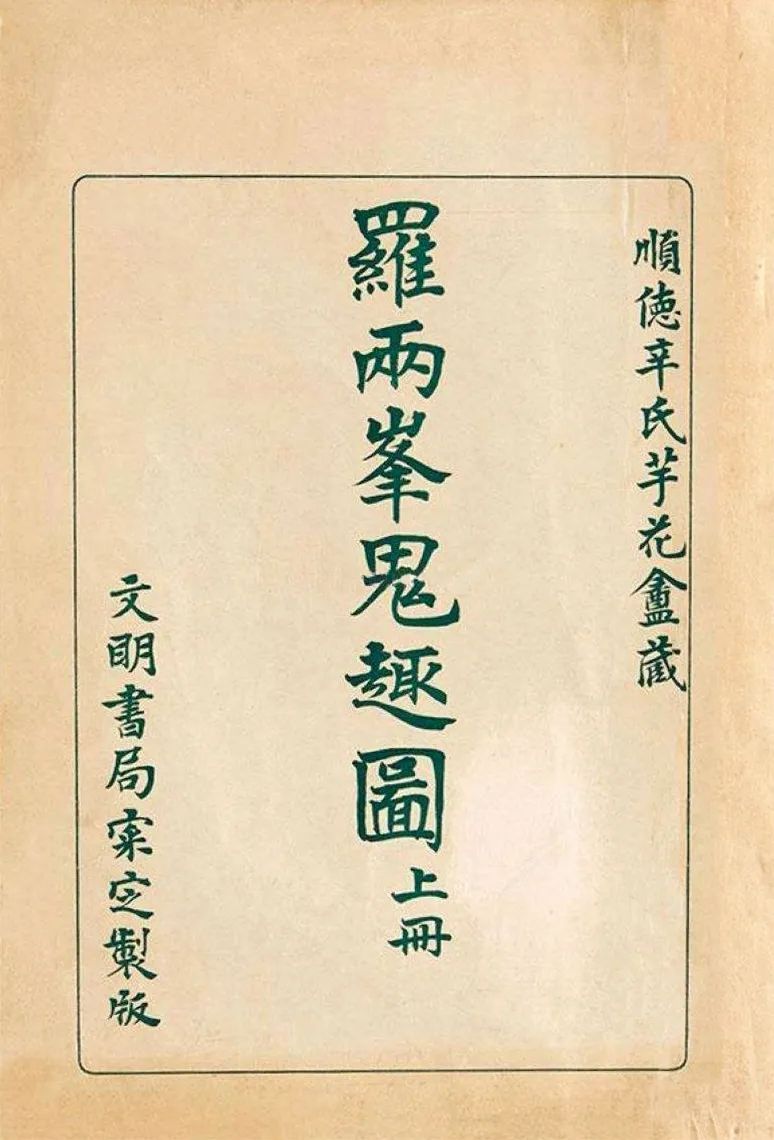 順徳辛氏芋花盦蔵
羅兩峯鬼趣圖上冊
文明書局寀定製版